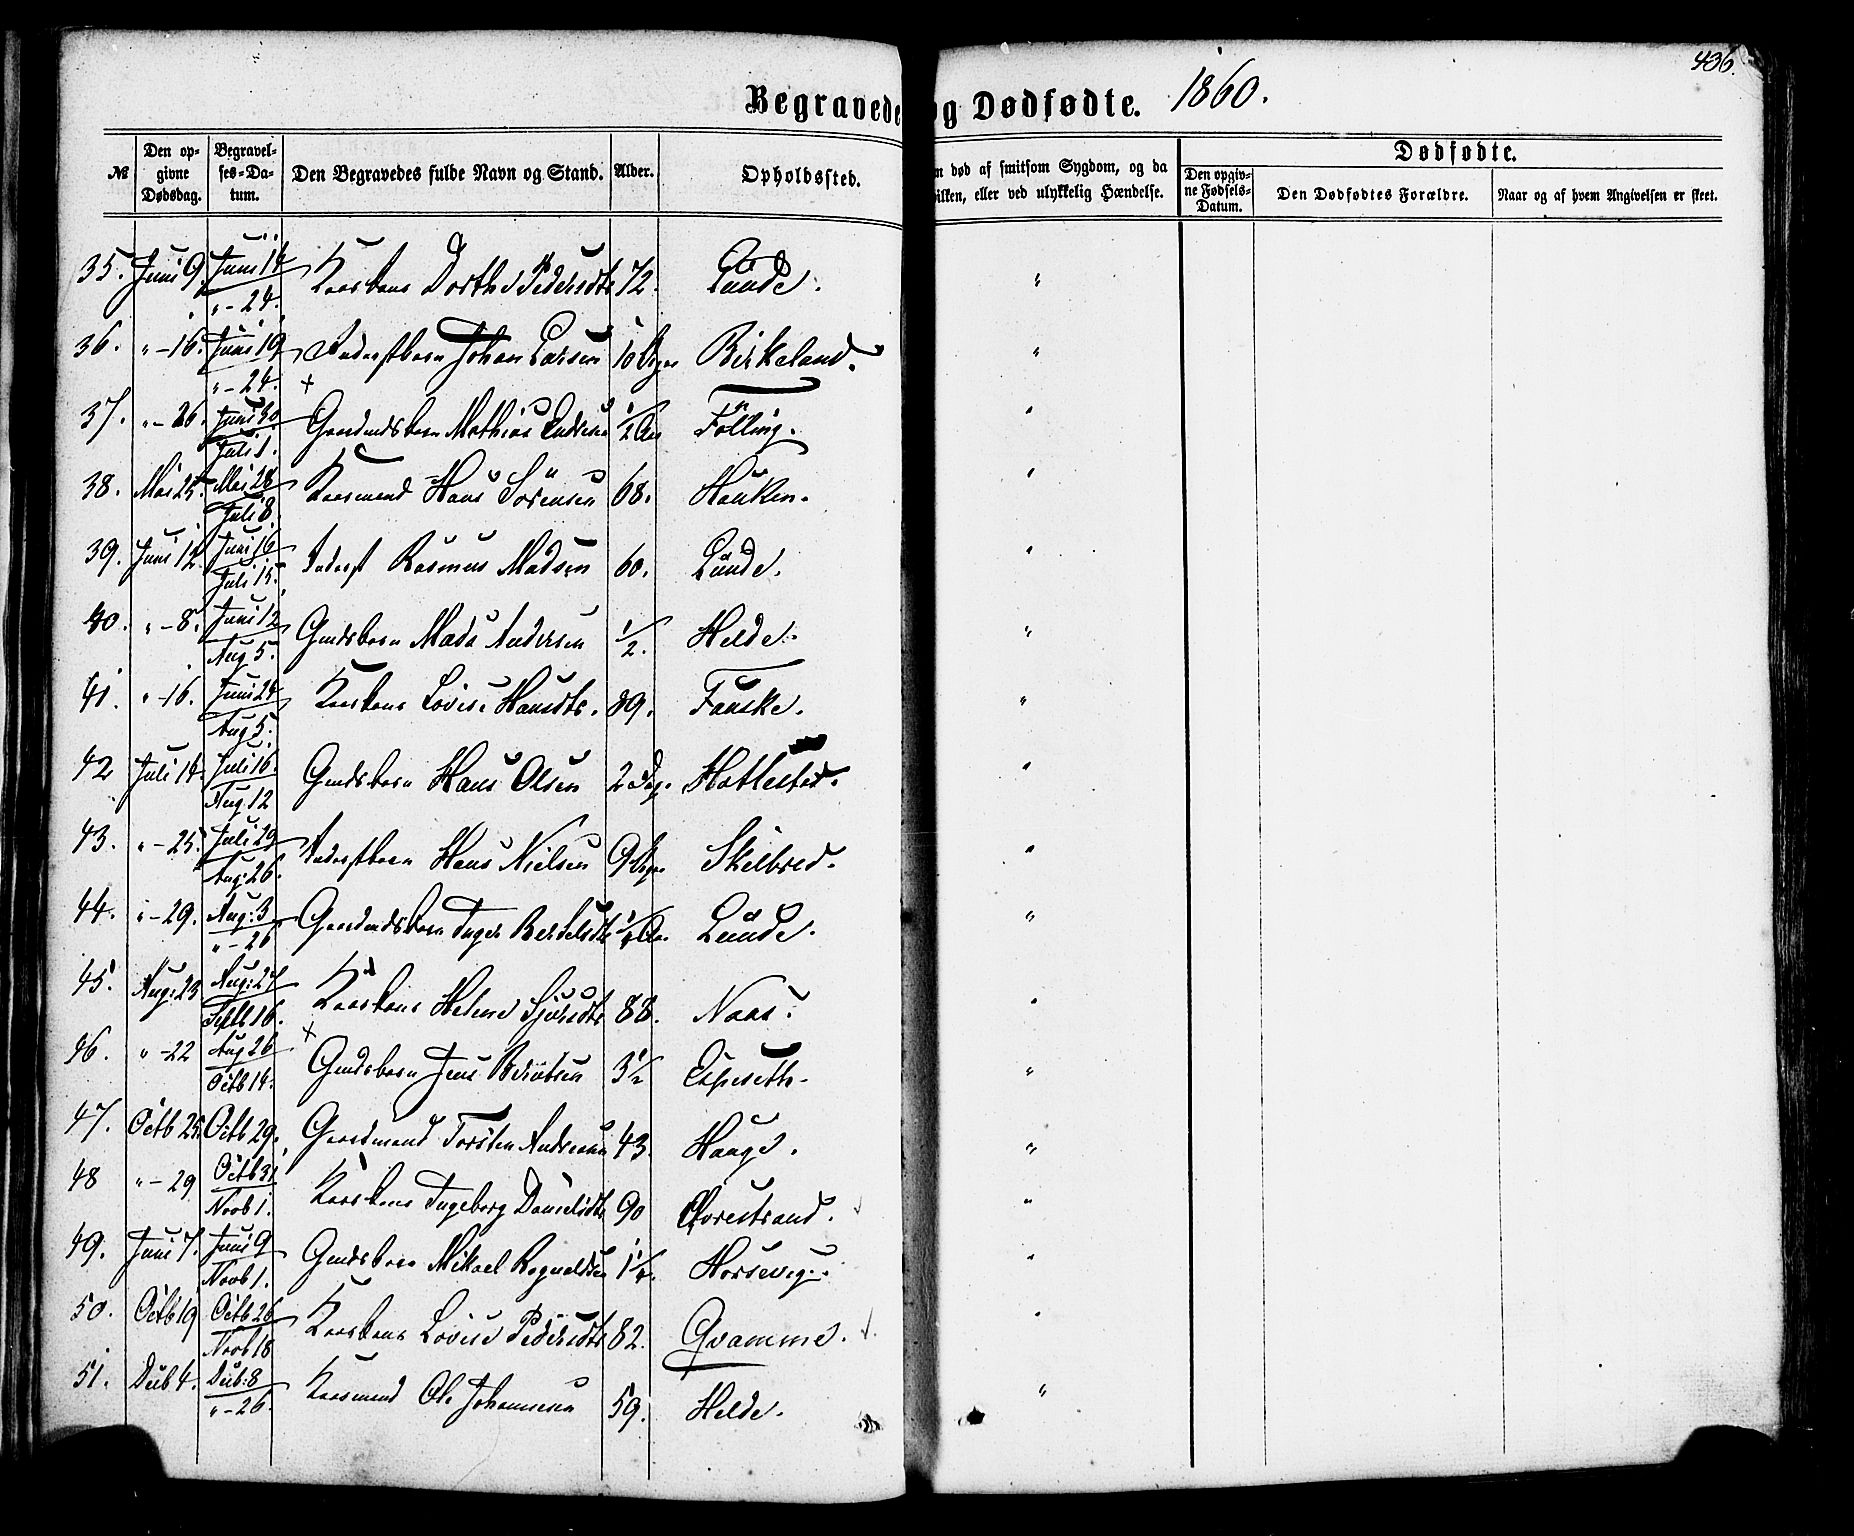 436.
Begravede og Dødfødte. 1860.
№ Den opgivne Dødsdag. Begravelses-Datum. Den Begravedes fulde Navn og Stand. Alder. Opholdssted. død af smitsom Sygdom, og da hvilken, eller ved ulykkelig Hændelse. Dødfødte. Den opgivne Fødsels-Datum. Den Dødfødtes Forældre. Naar og af hvem Angivelsen er skeet.
35. Juni 9. Juni 14 " - 24. Kaarkone Dorthe Pedersdtr 72. Lunde. "
36. " - 16. Juni 19 " - 24. Inderstbarn Johan Larsen 10 Uger Birkeland. "
37. " - 26. Juni 30 Juli 1. + Gaardmdsbarn Mathias Endresen 1/2 Aar Fölling. "
38. Mai 25. Mai 28 Juli 8. Kaarmand Hans Sörensen 68. Hauken. "
39. Juni 12. Juni 16 Juli 15. Inderst Rasmus Madsen 60. Lunde. "
40. " - 8. Juni 12 Aug 5. Gmdsbarn Mads Andersen 1/2. Helde. "
41. " - 16. Juni 24 Aug 5. Kaarkone Lovise Hansdtr. 89. Fauske. "
42 Juli 14. Juli 16. Aug. 12 Gmdsbarn Hans Olsen 2 Dag. Hatlestad. "
43. " - 25. Juli 29 Aug: 26. Inderstbarn Hans Nielsen 9 Uger Skilbred. "
44. " - 29. Aug: 3 " - 26 Gaardmdsbarn Inger Bertelsdtr 1/4 Aar. Lunde. "
45. Aug: 23 Aug: 27 Septb 16. Kaarkone Helene Sjursdtr 88. Naas. "
46. " - 22 Aug 26 Octb 14. + Gmdsbarn Jens Berntsen 3 1/2 Espeseth. "
47. Octb 25. Octb 29. Gaardmand Torsten Andresen 43. Hauge. "
48 " - 29 Octb 31 Novb 1. Kaarkone Ingeborg Danielsdtr 90 Aarestrand. "
49. Juni 7. Juni 9 Novb 1. Gmdsbarn Mikael Ragnaldsen 1 1/4. Horsevig. "
50. Octb 19 Octb 26 Novb 18 Kaarkone Lovise Pedersdtr 82. Qvamme. "
51. Decb 4. Decb: 8 " - 26. Kaarmand Ole Johannesen 59. Helde. "